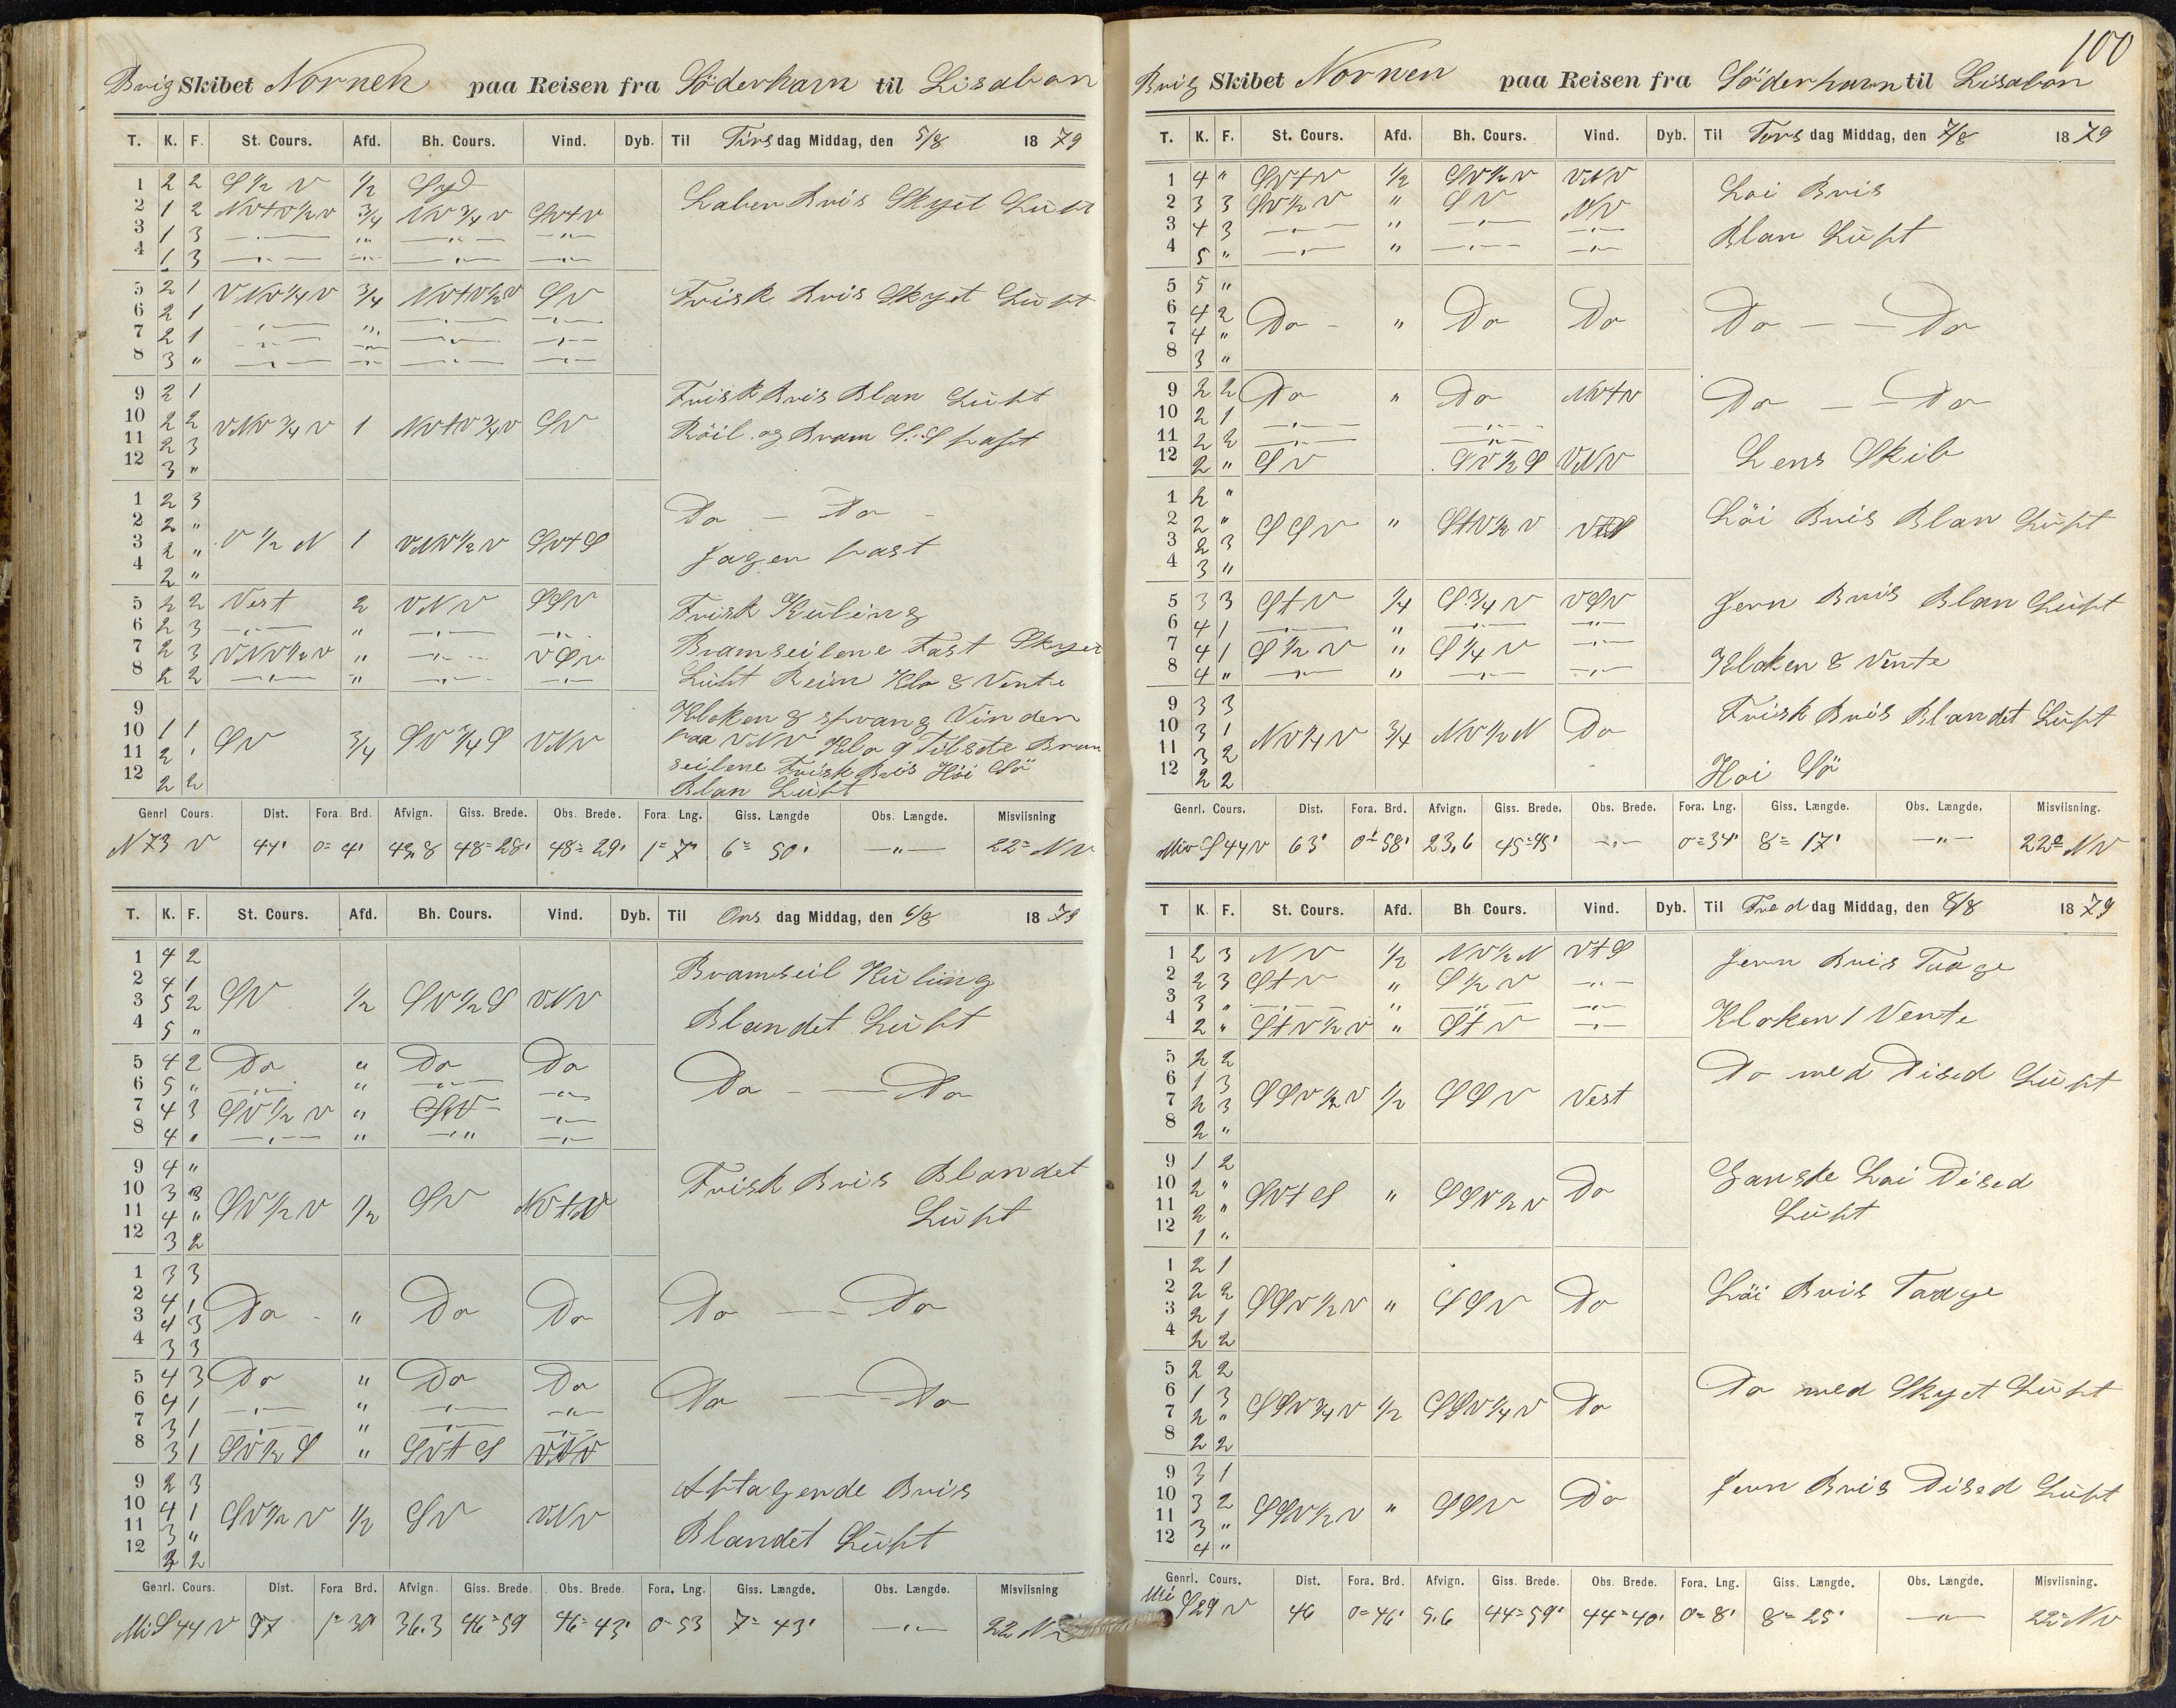 Brig Skibet Nornen paa Reisen fra Söderhavn til Lisabon
T. K. F. St. Cours. Afd. Bh. Cours. Vind. Dyb. Til Tirsdag Middag, den 5/8 1879
1 2 2 S 1/2 V 1/2 Syd
2 1 2 NVtV1/2V 3/4 NV 3/4 V SVtV
3 1 3 —„— „ —„— —„—
4 1 3 —„— „ —„— —„—
Laber Bris Skyet Luft
5 2 1 VNV1/4V 3/4 NVtV1/2V SV
6 2 1 —„— „ —„— —„—
7 2 1 —„— „ —„— —„—
8 3 „ —„— „ —„— —„—
Frisk Bris Skyet Luft
9 2 1
10 2 2 VNV 3/4 V 1 NVtV 3/4V SV
11 2 3
12 3 „
Frisk Bris Blan Luft
Röil og Bram S:S fast
1 2 3
2 2 „
3 2 „ V 1/2 N 1 VNV1/2V SVtS
4 2 „
Do — Do —
Jagen fast
5 2 2 Vest 2 VNV SSV
6 2 3 —„— „ —„— —„—
7 2 3 VNV1/2V „ —„— VSV
8 2 2 —„— „ —„— —„—
Frisk Kuling
Bramseilene Fast Skyet
Luft Rein Klo 8 Vente
9
10 1 1 SV 3/4 SV 3/4 S VNV
11 2 1
12 2 2
Kloken 8 sprang Vinden
paa VNV Klo 9 Tilsate Bram
seilene Frisk Bris Höi Sö
Blan Luft
Genrl Cours. Dist. Fora. Brd. Afvign. Giss. Brede. Obs. Brede. Fora. Lng. Giss. Længde Obs. Længde. Misviisning
N 73 V 44' 0=4' 43,8 48=28' 48=29' 1=7' 6= 50' —„— 22= NV
T. K. F. St. Cours. Afd. Bh. Cours. Vind. Dyb. Til Onsdag Middag, den 6/8 1879
1 4 2
2 4 1
3 5 2 SV 1/2 SV1/2S VNV
4 5 „
Bramseil Kuling
Blandet Luft
5 4 2 Do „ Do Do
6 5 „ —„— „ —„— —„—
7 4 3 SV1/2 V „ SV —„—
8 4 „ —„— „ —„— —„—
Do — — Do
9 4 „
10 3 3
11 4 „ SV1/2 V 1/2 SV NVtV
12 3 2
Frisk Bris Blandet
Luft
1 3 3
2 4 1
3 4 3 Do „ Do Do
4 3 3
Do — — Do
5 4 3 Do „ Do Do
6 4 1 —„— „ —„— —„—
7 3 1 —„— „ —„— —„—
8 3 1 SV1/2 S „ SVtS VNV
Do — — Do
9 2 3
10 4 1 SV1/2 V 1/2 SV VNV
11 3 „
12 2 2
Aftagende Bris
Blandet Luft
Genrl. Cours. Dist. Fora Brd. Afvign. Giss. Brede. Obs. Brede. Fora. Lng. Giss. Længde. Obs. Længde. Misviisning
Mi S 44 V 97 1=30' 36.3 46=59 46=43' 0=53 7= 43' —„— 22 N
100
Brig Skibet Nornen paa Reisen fra Söderhavn til Lisabon
T. K. F. St. Cours. Afd. Bh. Cours. Vind. Dyb. Til Torsdag Middag, den 7/8 1879
1 4 „ SVtV 1/2 SV1/2V VNV
2 3 3 SV1/2 V „ SV NV
3 4 3 —„— „ —„— —„—
4 5 „ —„— „ —„— —„—
Löi Bris
Blan Luft
5 5 „
6 4 2 Do — „ Do Do
7 4 „
8 3 „
Do — — Do
9 2 2 Do „ Do NVtV
10 2 1
11 2 2 —„— —„—
12 2 „ SV SV1/2S VNV
Do — — Do
Lens Skib
1 2 „
2 2 „ SSV „ StV1/2 V VtS
3 2 3
4 3 „
Löi Bris Blan Luft
5 3 3 StV 1/4 S3/4 V VSV
6 4 1 —„— „ —„— —„—
7 4 1 S 1/2 V „ S 1/4 V —„—
8 4 „ —„— „ —„— —„—
Jevn Bris Blan Luft
Kloken 8 Vente
9 3 3
10 3 1 NV1/4 V 3/4 NV1/2N Do
11 3 2
12 2 2
Frisk Bris Blandet Luft
Höi Sö
Genrl. Cours. Dist. Fora. Brd. Afvign. Giss. Brede. Obs. Brede. Fora. Lng. Giss. Længde. Obs. Længde. Misviisning.
Miv S 44 V 63' 0=58' 23,6 45=45' —„— 0=34' 8= 17' —„— 22= NV
T K. F. St. Cours. Afd. Bh. Cours. Vind. Dyb. Til Freddag Middag, den 8/8 1879
1 2 3 NV 1/2 NV1/2N VtS
2 2 3 StV „ S 1/2 V —„—
3 3 „ —„— „ —„— —„—
4 2 „ StV1/2 V „ StV —„—
Jevn Bris Taage
Kloken 1 Vente
5 2 2
6 1 3 SSV1/2V 1/2 SSV Vest
7 2 3
8 2 „
Do med Dised Luft
9 1 2
10 2 „ SVtS „ SSV1/2 V Do
11 2 „
12 1 „
Ganske Löi Dised
Luft
1 2 1
2 2 2 SSV1/2V „ SSV Do
3 2 1
4 2 2
Löi Bris Taage
5 2 2
6 1 3 SSV3/4 V 1/2 SSV1/4 V Do
7 2 „
8 2 2
Do med Skyet Luft
9 3 1
10 3 2 SSV1/2 V „ SSV Do
11 3 „
12 4 „
Jevn Bris Dised Luft
Genrl. Cours. Dist. Fora. Brd. Afvign. Giss. Brede. Obs. Brede. Fora. Lng. Giss. Længde. Obs. Længde. Misviisning.
Mi S29 V 46 0=46' 5,6 44=59' 44=40' 0=8' 8= 25' —„— 22= NV